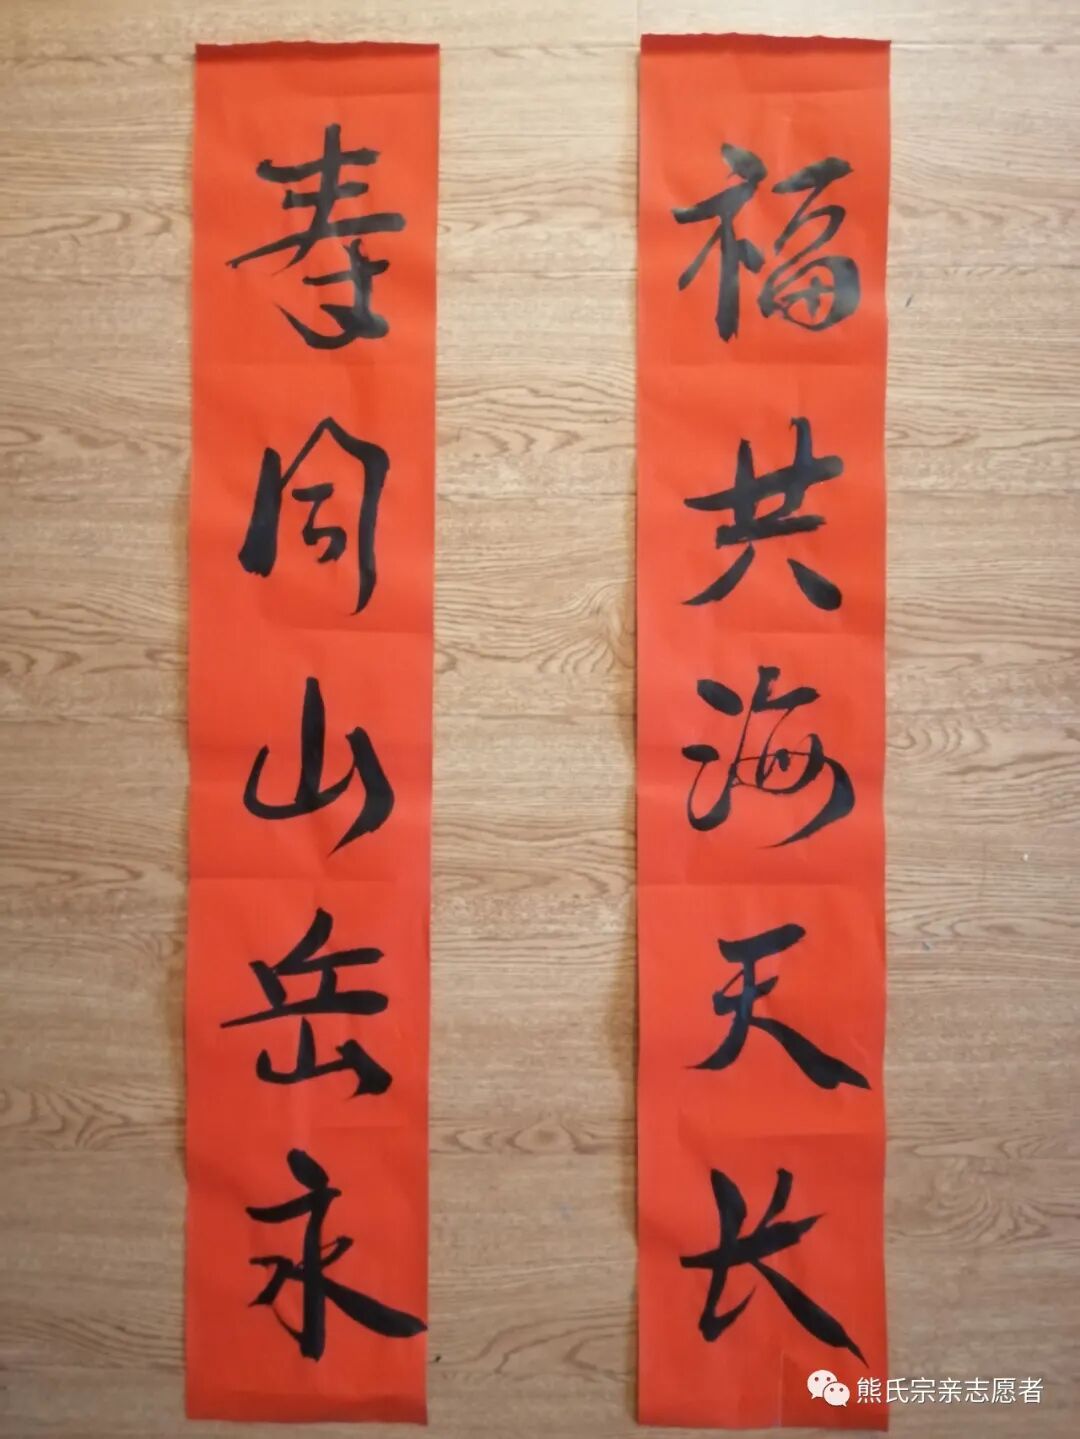 福共海天长
寿同山岳永
熊氏宗亲志愿者